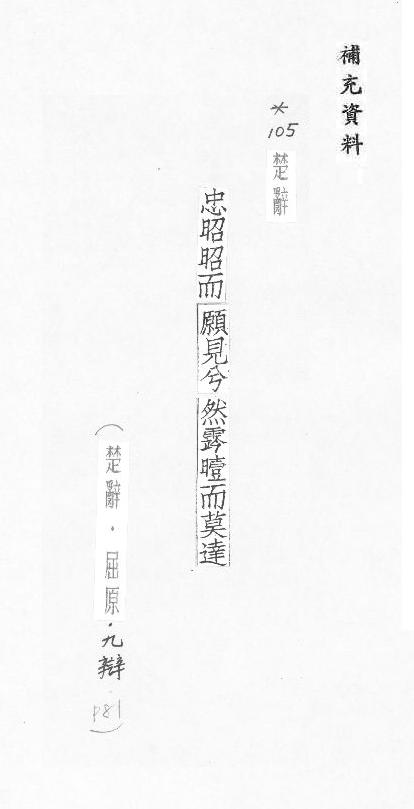 補充資料
* 105 楚辭
忠昭昭而願見兮然霠曀而莫達
（楚辭・屈原・九辯 p81）